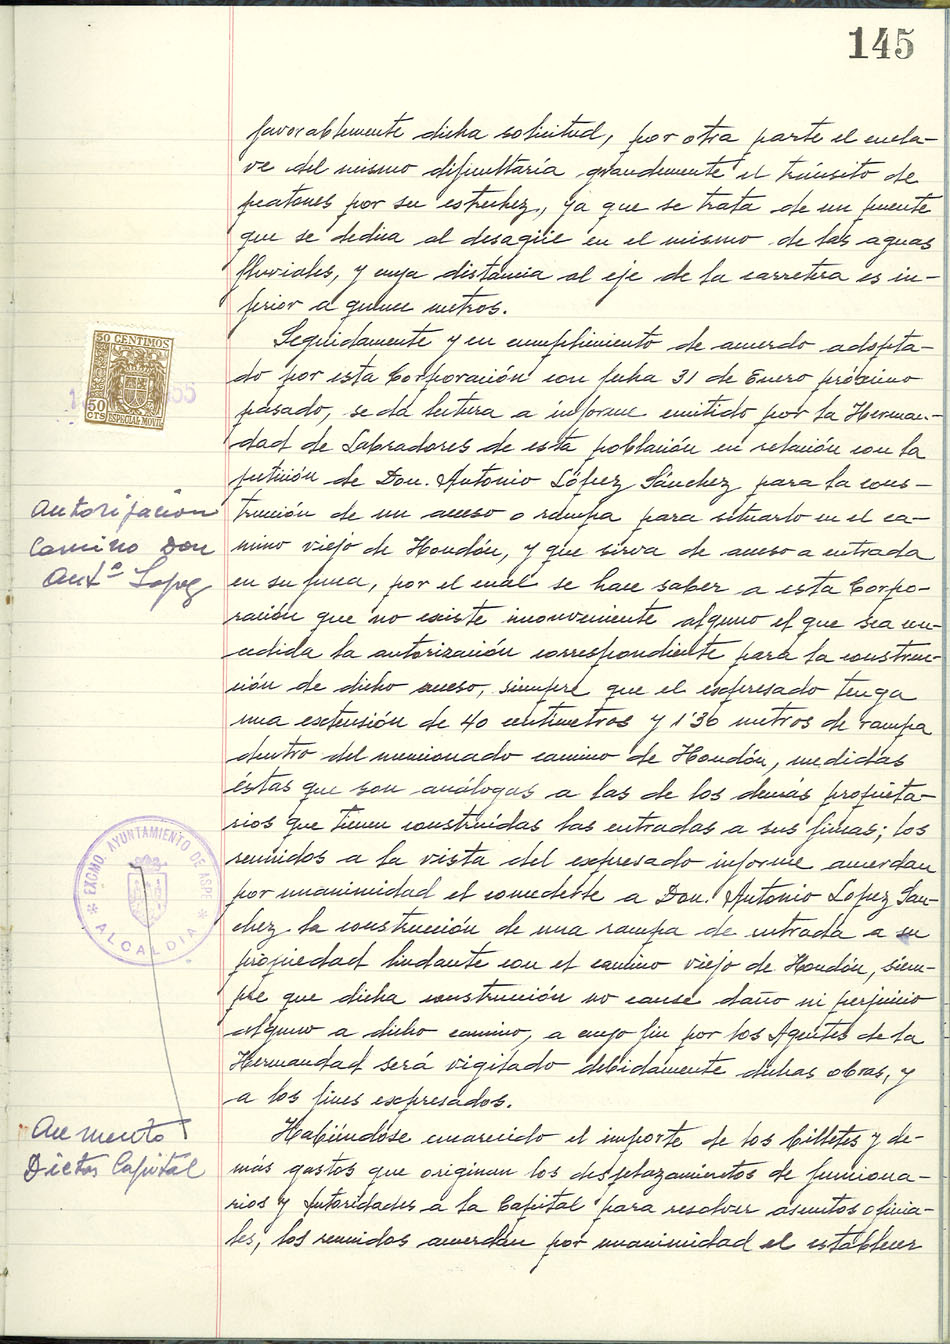 145
favorablemente dicha solicitud, por otra parte el encla-
ve del mismo dificultaría grandemente el tránsito de
peatones por su estrechez, ya que se trata de un puente
que se dedica al desagüe en el mismo de las aguas
fluviales, y cuya distancia al eje de la carretera es in-
ferior a quince metros.
Seguidamente y en cumplimiento de acuerdo adopta-
do por esta Corporación con fecha 31 de Enero próximo
pasado, se da lectura a informe emitido por la Herman-
dad de Labradores de esta población en relación con la
petición de Don. Antonio López Sánchez para la cons-
trucción de un acceso o rampa para situarlo en el ca-
mino viejo de Hondón, y que sirva de acceso a entrada
en su finca, por el cual se hace saber a esta Corpo-
ración que no existe inconveniente alguno el que sea con-
cedida la autorización correspondiente para la construc-
ción de dicho acceso, siempre que el expresado tenga
una extensión de 40 centímetros y 1'36 metros de rampa
dentro del mencionado camino de Hondón, medidas
éstas que son análogas a las de los demás propieta-
rios que tienen construídas las entradas a sus fincas; los
reunidos a la vista del expresado informe acuerdan
por unanimidad el concederle a Don. Antonio Lopez San-
chez la construcción de una rampa de entrada a su
propiedad lindante con el camino viejo de Hondón, siem-
pre que dicha construcción no cause daño ni perjuicio
alguno a dicho camino, a cuyo fin por los Agentes de la
Hermandad será vigilado debidamente dichas obras, y
a los fines expresados.
Habiéndose encarecido el importe de los billetes y de-
más gastos que originan los desplazamientos de funciona-
rios y Autoridades a la Capital para resolver asuntos oficia-
les, los reunidos acuerdan por unanimidad el establecer
50 CENTIMOS
50 CTS
ESPECIAL MOVIL
55
Autorización
Camino Don
Antº Lopez
EXCMO. AYUNTAMIENTO DE ASPE
* ALCALDIA *
Aumento
Dietas Capital